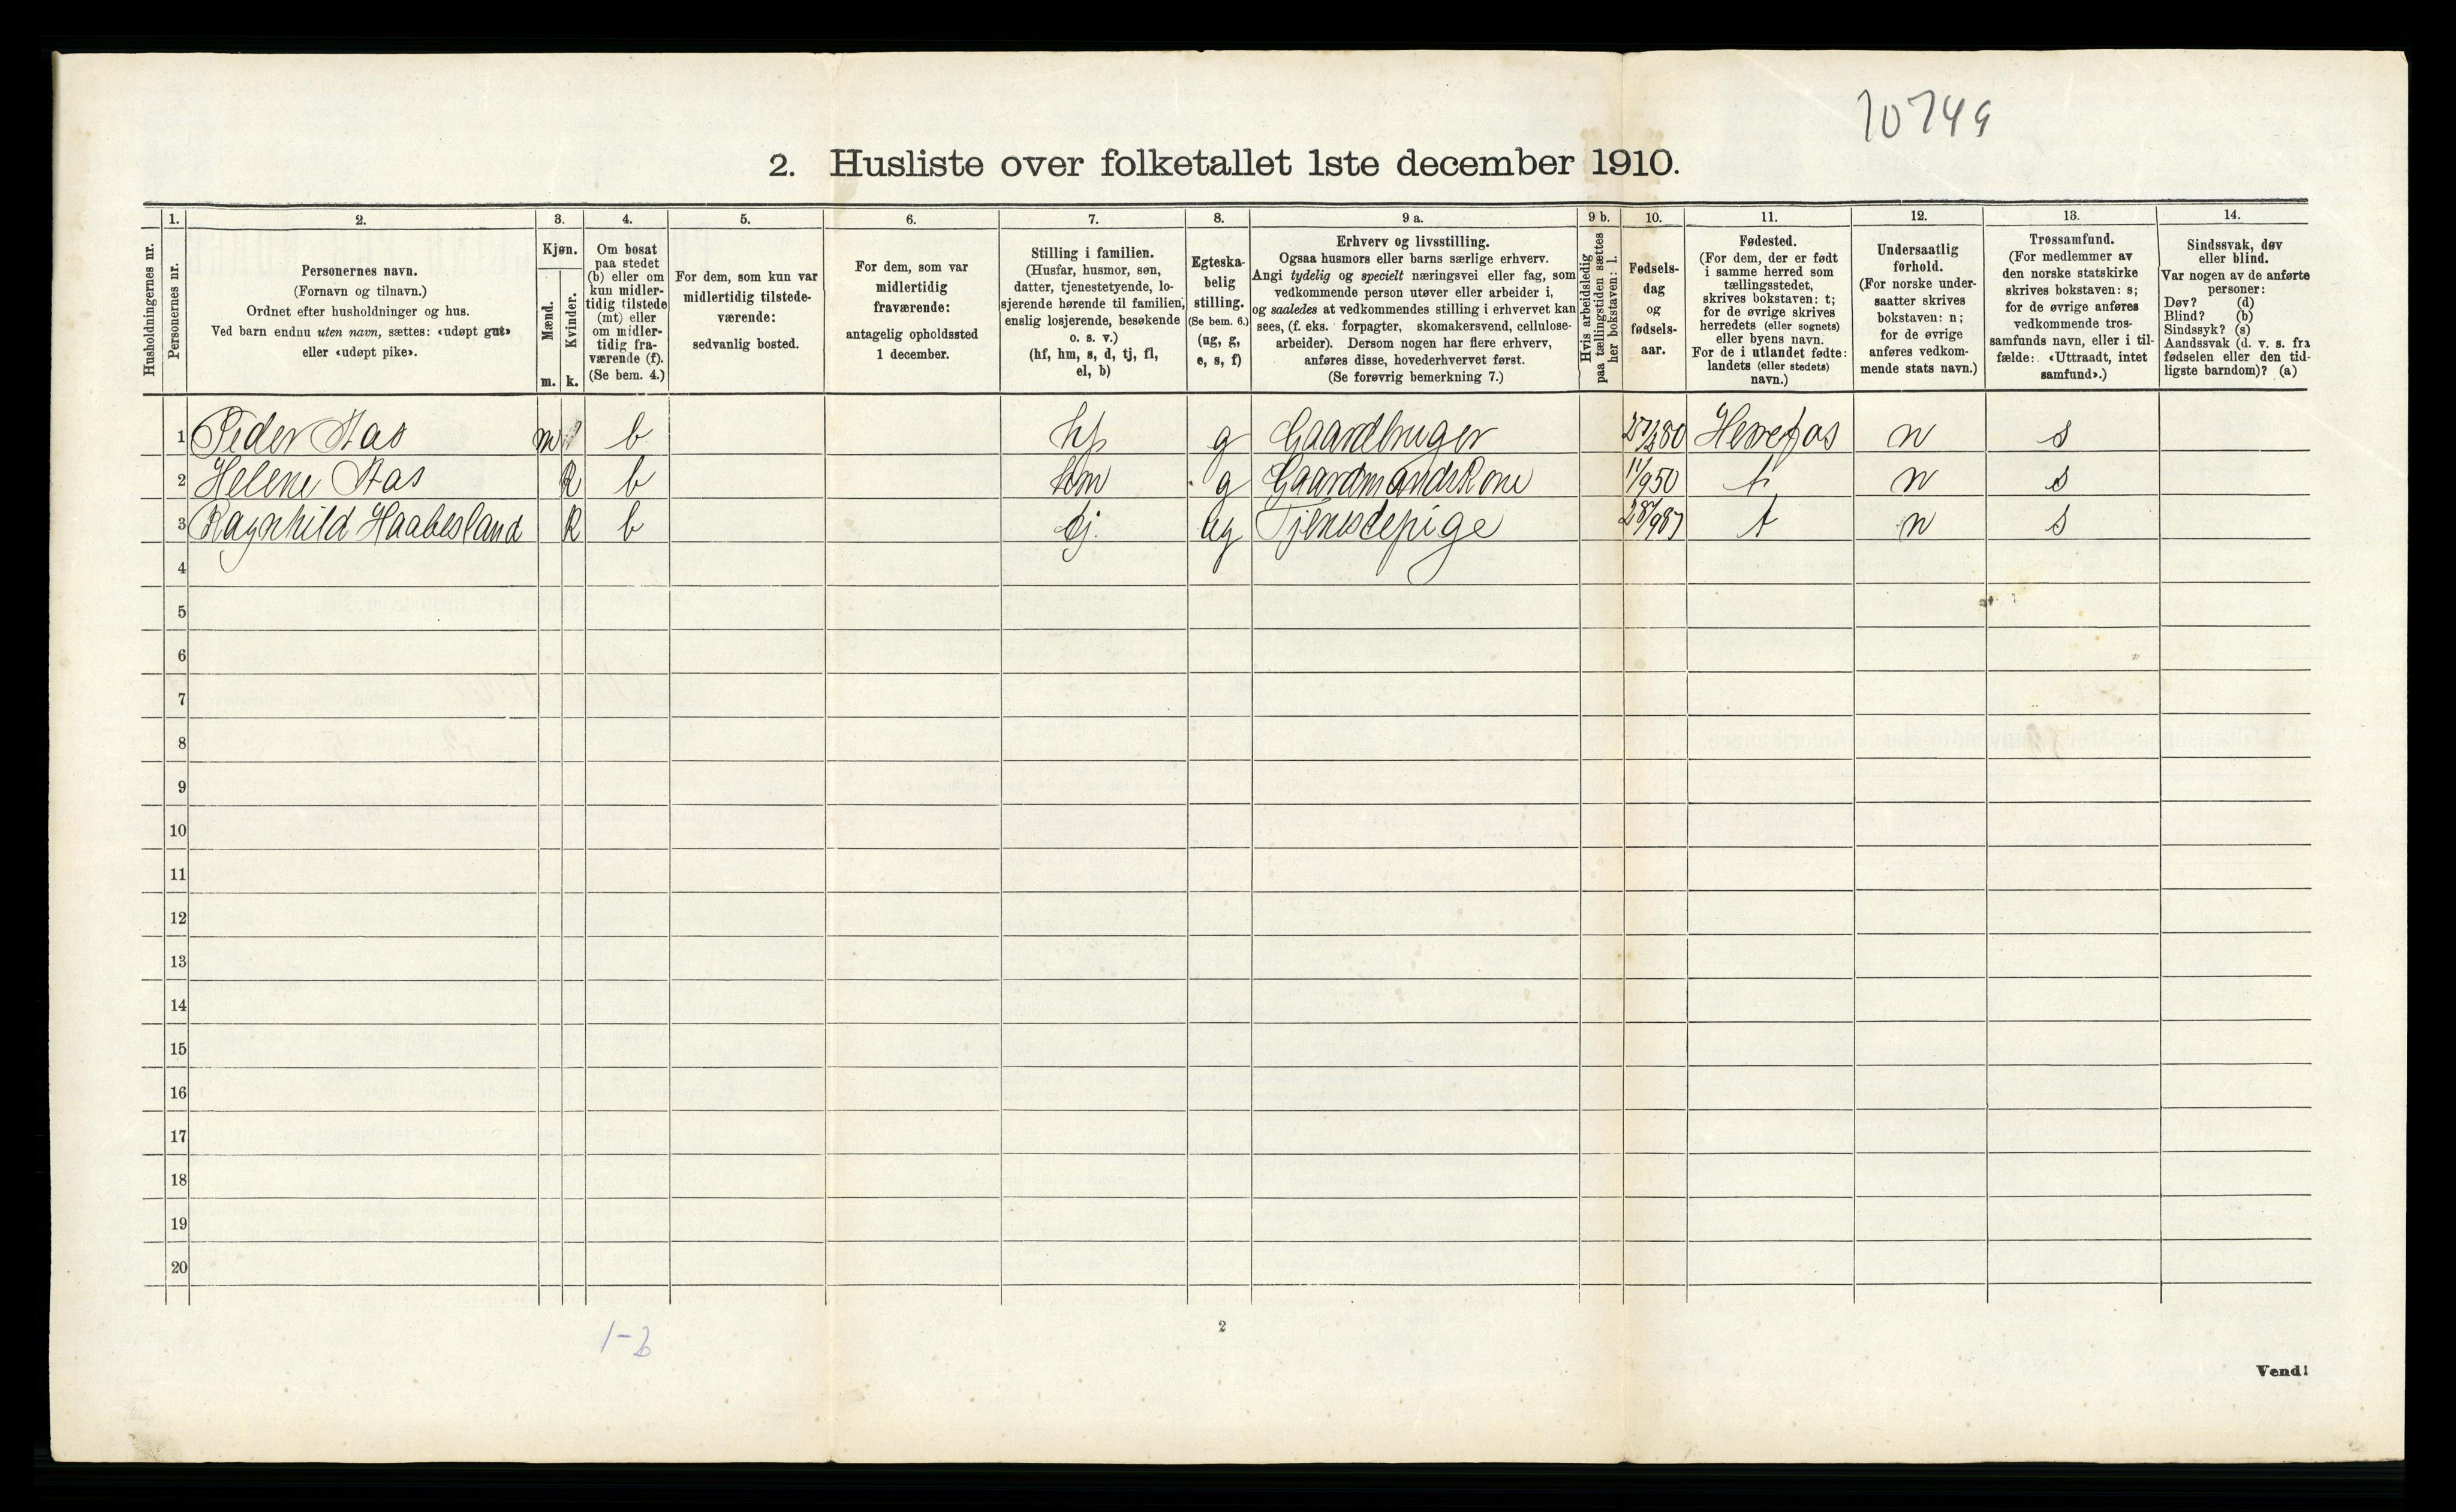 10749
2. Husliste over folketallet 1ste december 1910.
1. 2. 3. 4. 5. 6. 7. 8. 9 a. 9 b. 10. 11. 12. 13. 14.
Husholdningernes nr.
Personernes nr.
Personernes navn.
(Fornavn og tilnavn.)
Ordnet efter husholdninger og hus.
Ved barn endnu uten navn, sættes: «udøpt gut»
eller «udøpt pike».
Kjøn.
Mænd.
Kvinder.
m. k.
Om bosat
paa stedet
(b) eller om
kun midler-
tidig tilstede
(mt) eller
om midler-
tidig fra-
værende (f).
(Se bem. 4.)
For dem, som kun var
midlertidig tilstede-
værende:
sedvanlig bosted.
For dem, som var
midlertidig
fraværende:
antagelig opholdssted
1 december.
Stilling i familien.
(Husfar, husmor, søn,
datter, tjenestetyende, lo-
sjerende hørende til familien,
enslig losjerende, besøkende
o. s. v.)
(hf, hm, s, d, tj, fl,
el, b)
Egteska-
belig
stilling.
(Se bem. 6.)
(ug, g,
e, s, f)
Erhverv og livsstilling.
Ogsaa husmors eller barns særlige erhverv.
Angi tydelig og specielt næringsvei eller fag, som
vedkommende person utøver eller arbeider i,
og saaledes at vedkommendes stilling i erhvervet kan
sees, (f. eks. forpagter, skomakersvend, cellulose-
arbeider). Dersom nogen har flere erhverv,
anføres disse, hovederhvervet først.
(Se forøvrig bemerkning 7.)
Hvis arbeidsledig
paa tællingstiden sættes
her bokstaven: l.
Fødsels-
dag
og
fødsels-
aar.
Fødested.
(For dem, der er født
i samme herred som
tællingsstedet,
skrives bokstaven: t;
for de øvrige skrives
herredets (eller sognets)
eller byens navn.
For de i utlandet fødte:
landets (eller stedets)
navn.)
Undersaatlig
forhold.
(For norske under-
saatter skrives
bokstaven: n;
for de øvrige
anføres vedkom-
mende stats navn.)
Trossamfund.
(For medlemmer av
den norske statskirke
skrives bokstaven: s;
for de øvrige anføres
vedkommende tros-
samfunds navn, eller i til-
fælde: «Uttraadt, intet
samfund».)
Sindssvak, døv
eller blind.
Var nogen av de anførte
personer:
Døv? (d)
Blind? (b)
Sindssyk? (s)
Aandssvak (d. v. s. fra
fødselen eller den tid-
ligste barndom)? (a)
1 Peder Aas m b hf g Gaardbruger Herefos n s
2 Helene Aas k b hm g Gaardmandskone 11/9 50 t n s
3 Ragnhild Haabesland k b tj. ug Tjenstepige 28/9 87 t n s
4
5
6
7
8
9
10
11
12
13
14
15
16
17
18
19
20
1-2
2
Vend!